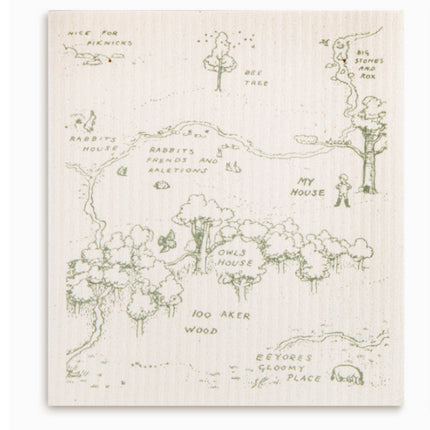 NICE FOR
PIKNICKS
BEE
TREE
BIG
STONES
AND
ROX
RABBITS
HOUSE
RABBITS
FRENDS AND
RALETIONS
MY
HOUSE
OWLS
HOUSE
100 AKER
WOOD
EEYORES
GLOOMY
PLACE